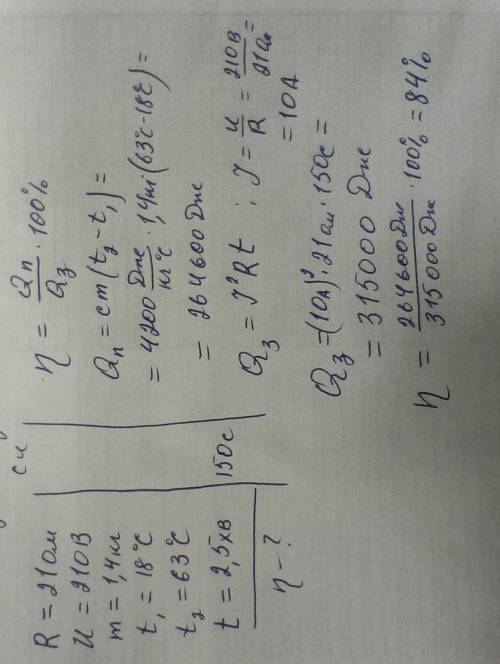 си
R = 21 Ом
U = 210 В
m = 1,4 кг
t₁ = 18°C
t₂ = 63°C
t = 2,5 хв
150 с
η - ?
η = Qп/Qз · 100%
Qп = cm(t₂ - t₁) =
= 4200 Дж/кг°C · 1,4 кг · (63°C - 18°C) =
= 264600 Дж
Qз = I²Rt ; I = U/R = 210В/21Ом =
= 10A
Qз = (10A)² · 21 Ом · 150 с =
= 315000 Дж
η = 264600 Дж/315000 Дж · 100% = 84%